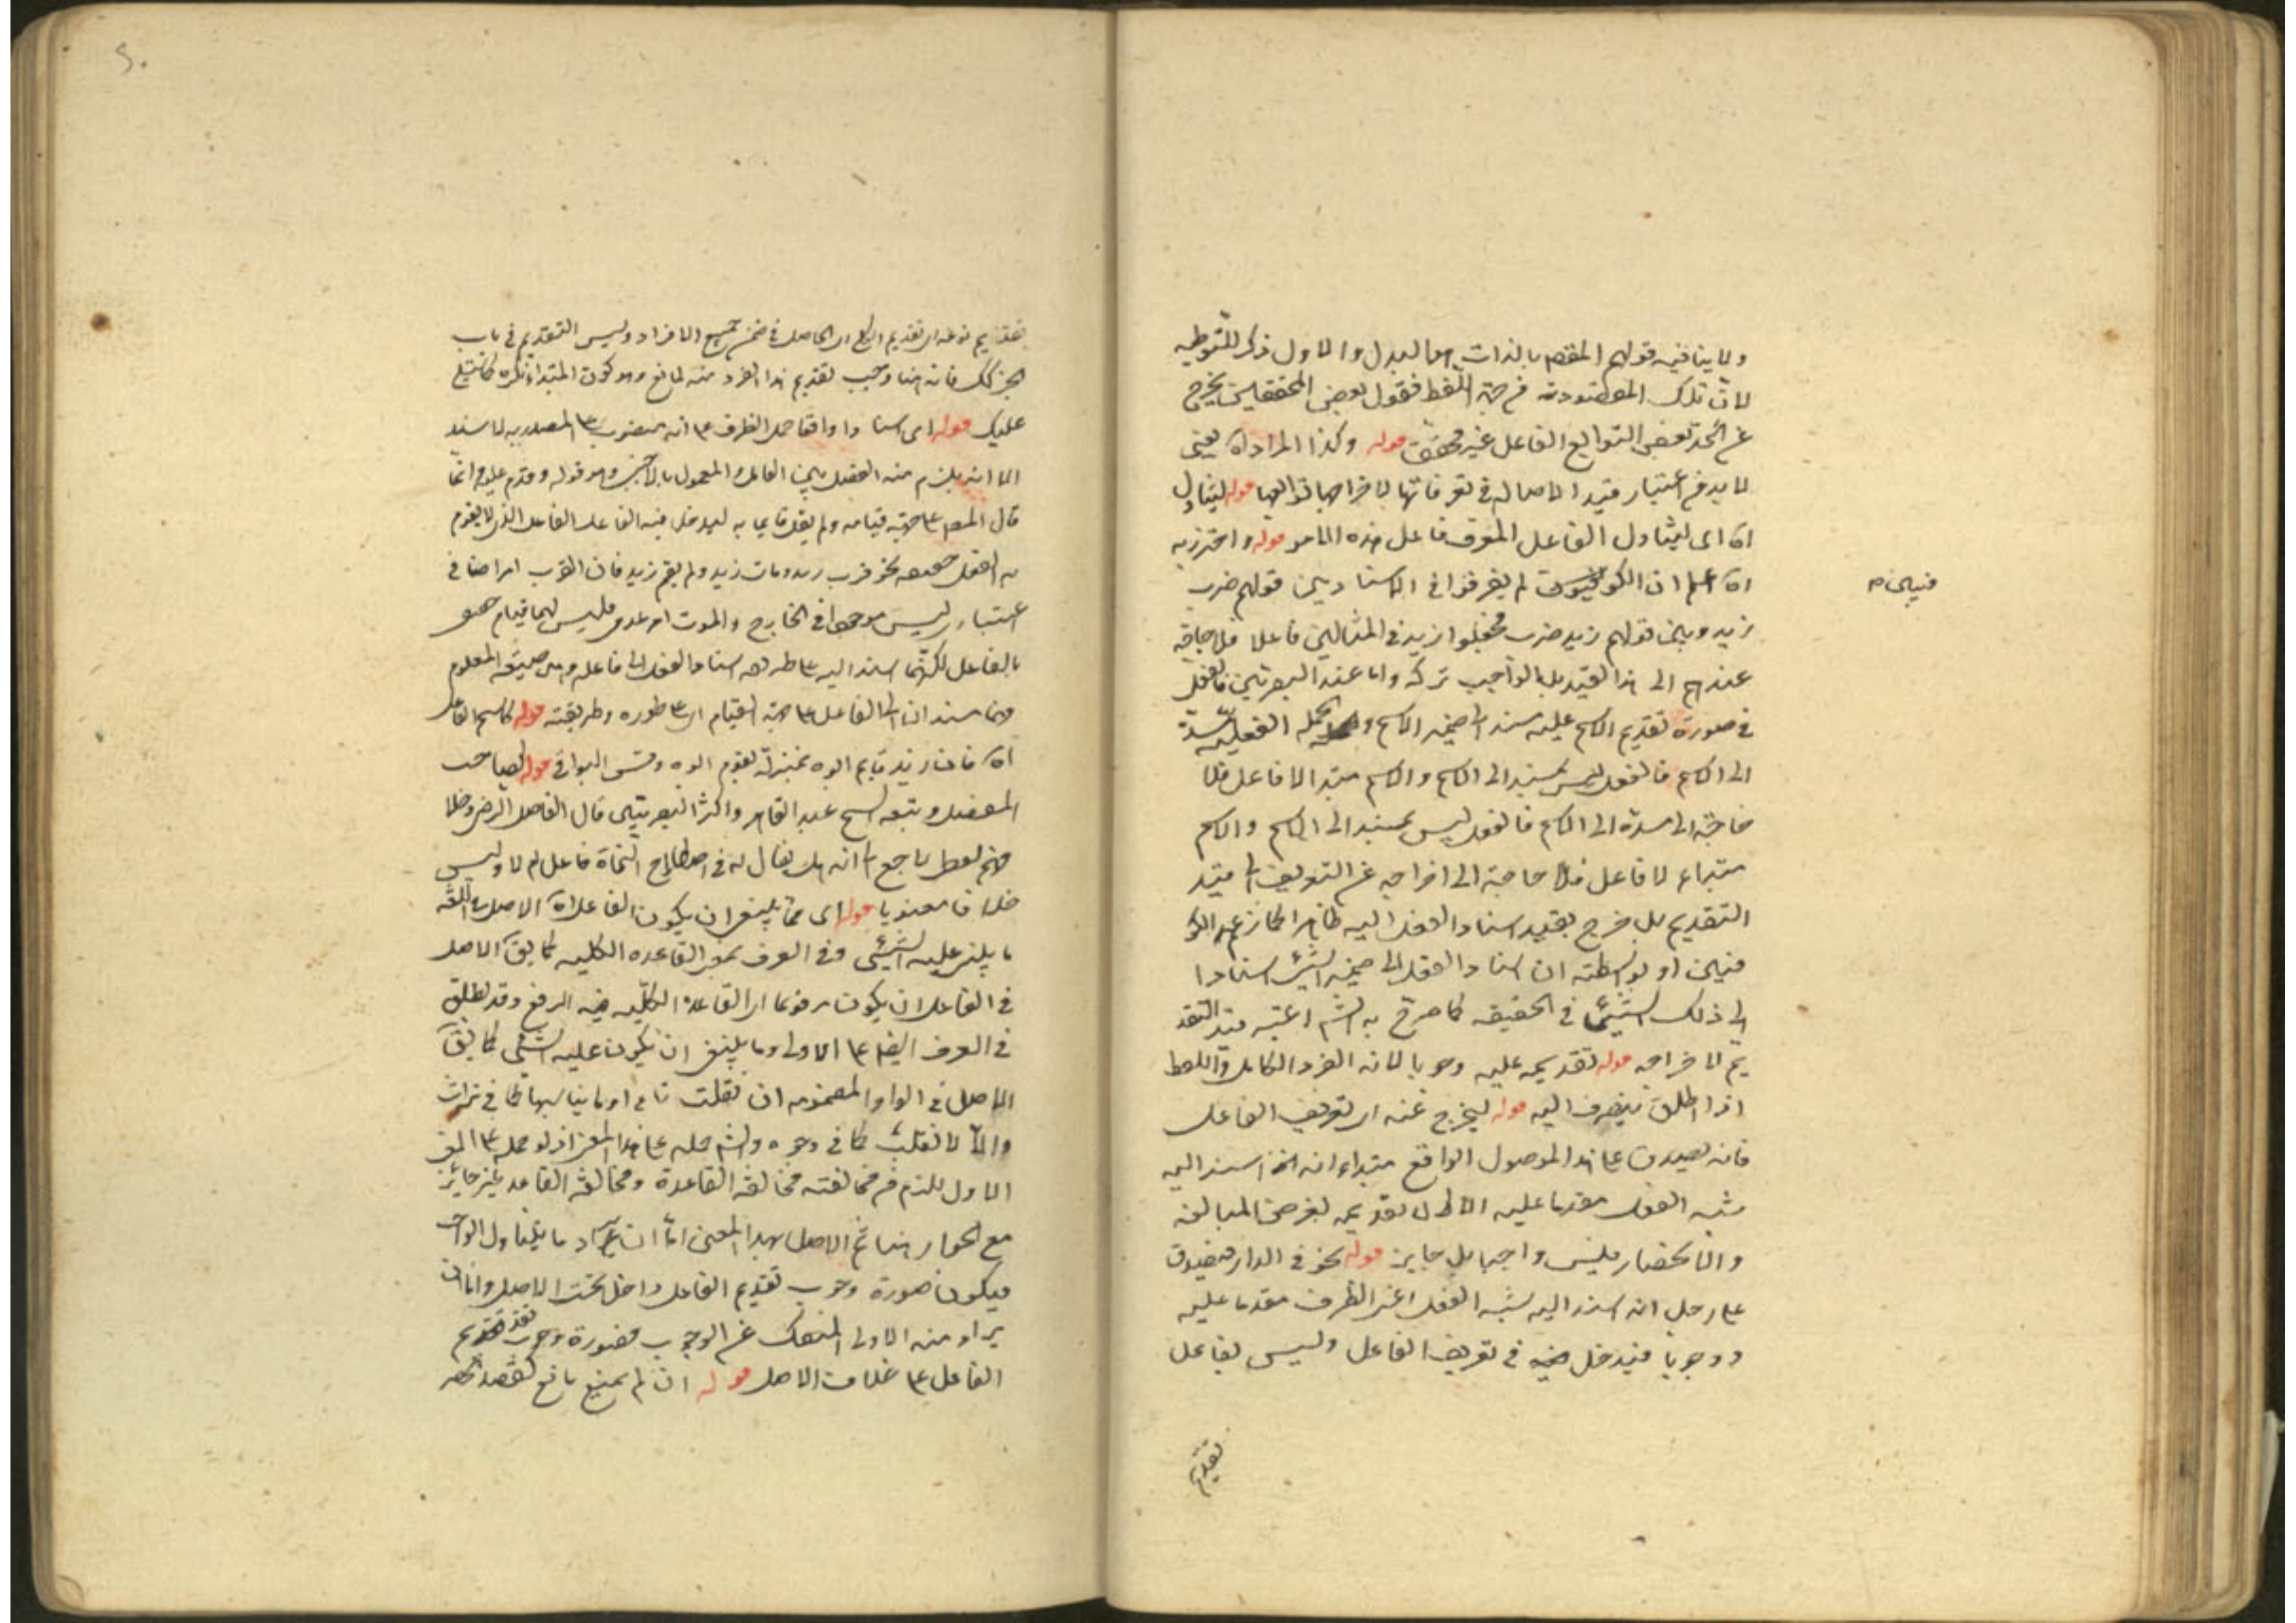 ولا ينافيه قولهم المقصود بالذات هو البدل والاول ذكر للتوطية
لان تلك المقصودية من جهة اللفظ فقول بعض المحققين يخرج
عن الحد بعض التوابع الفاعل غير محقق قوله وكذا المراد اه يعني
لا بد من اعتبار قيد الاصالة في تعريفاتها لاخراجها توابعها قوله ليتناول
اه اى ليتناول الفاعل المعرف فاعل هذه الامور قوله واحترز به
اه اعلم ان الكوفيون لم يفرقوا في الاسناد بين قولهم ضرب
فيين م
زيد وبين قولهم زيد ضرب فجعلوا زيد في المثالين فاعلا فلا حاجة
عندهم الى هذا القيد بل الواجب تركه واما عند البصريين فالفعل
في صورة تقديم الاسم عليه مسند الى ضمير الاسم والجملة الفعلية مسندة
الى الاسم فالفعل ليس بمسند الى الاسم والاسم مبتدا لا فاعل فلا
حاجة الى مسندة الى الاسم فالفعل ليس بمسند الى الاسم والاسم
مبتداء لا فاعل فلا حاجة الى اخراجه عن التعريف الى قيد
التقديم بل خرج بقيد اسناد الفعل اليه ظاهرا كما زعم الكو
فيين او بواسطة ان اسناد الفعل الى ضمير الشئ اسنادا
الى ذلك الشئ في الحقيقة كما صرح به الشم اعتبر قيد التقد
يم لاخراجه قوله تقديمه عليه وجوبا لانه الفرد الكامل واللفظ
اذا اطلق ينصرف اليه قوله ليخرج عنه اى تعريف الفاعل
فانه يصدق على هذا الموصول الواقع مبتداء انه اسم اسند اليه
شبه الفعل مقدما عليه الا ان تقديمه لغرض المبالغة
والانحصار فليس واجبا بل جايز قوله نحو في الدار فيصدق
على رجل انه اسند اليه شبه الفعل اعنى الظرف مقدما عليه
ووجوبا فيدخل فيه في تعريف الفاعل وليس بفاعل
تقديم
تقديم نوعه اى تقديم النوع الحاصل في ضمن جميع الافراد وليس التقديم في باب
الخبر كذلك فانه هنا وجب تقديم هذا الفرد منه لمانع وهو كون المبتداء نكرة
عليك قوله اى اسنادا واقعا حمل الظرف على انه منصوب على المصدرية لاسند
الا انه يلزم منه الفصل بين العامل والمعمول بالاجنبى وهو قوله وقدم عليه وانما
قال المص على جهة قيامه ولم يقل قايما به ليدخل فيه الفاعل الفاعل الذى لا يقوم
به الفعل حقيقة نحو قرب زيد ومات زيد ولم يقم زيد فان القرب امر اضافى
اعتبارى ليس موجودا في الخارج والموت امر عدمى فليس لهما قيام
بالفاعل لكنهما اسند اليه على طريقة اسناد الفعل الى فاعله وهى صيغة المعلوم
فهما مسندان الى الفاعل على جهة القيام اى على طوره وطريقته قوله كاسم الفاعل
اه فان زيد قايم ابوه بمنزلة يقوم ابوه وقس البواقى قوله لصاحب
المفصل وتبعه الشيخ عبد القاهر واكثر البصريين قال الفاضل الرضى وخلا
فهم لفظى راجع الى انه هل يقال له في اصطلاح النحاة فاعل ام لا وليس
خلافا معنويا قوله اى مما ينبغى ان يكون الفاعل اه الاصل في اللغة
ما يبنى عليه الشئ وفى العرف بمعنى القاعدة الكلية كما يقال الاصل
في الفاعل ان يكون مرفوعا اى القاعدة الكلية فيه الرفع وقد يطلق
في العرف ايضا على الاولى وما ينبغى ان يكون عليه الشئ كما يقال
الاصل في الواو المضمومة ان تقلب تاء او ما يناسبها كما في تراث
والا لا تقلب كما في وجوه والشم حمله على هذا المعنى اذ لو حمله على المعنى
الاول للزم في مخالفته مخالفة القاعدة ومخالفة القاعدة غير جايز
مع الجواز هنا ثم الاصل بهذا المعنى اما ان يراد ما يتناول الواجب
فيكون صورة وجوب تقديم الفاعل داخل تحت الاصل واما ان
يراد منه الاولى المنفك عن الوجوب فصورة وجوب تقديم
الفاعل على خلاف الاصل قوله ان لم يمنع مانع كقصد الحصر